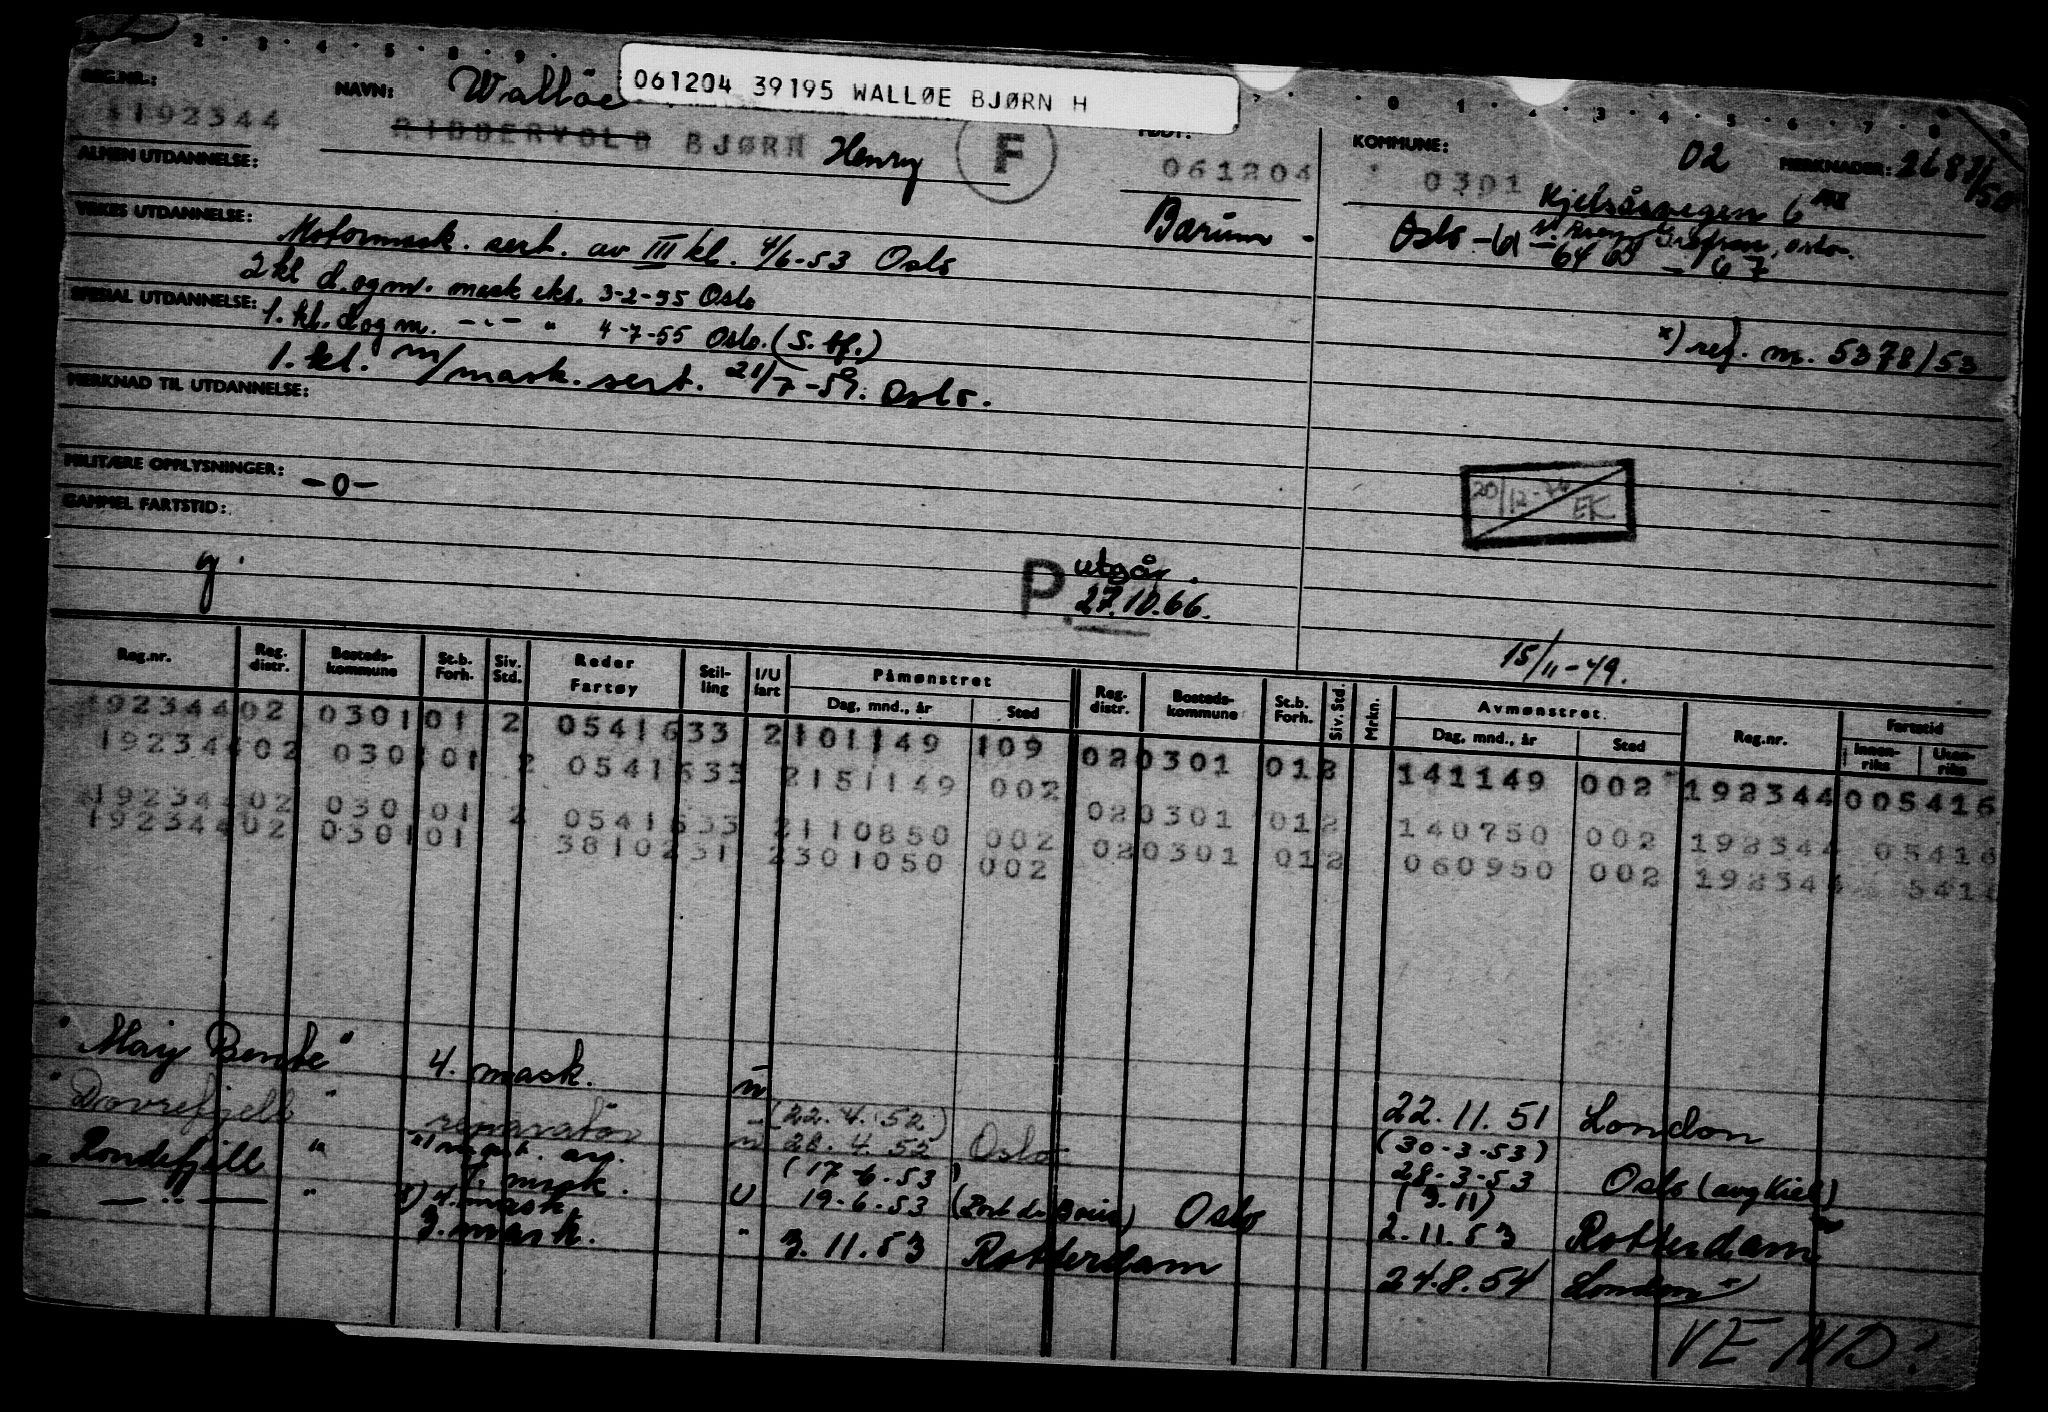 061204 39195 WALLØE BJØRN H
REG.NR.:
NAVN: Walløe
192344
RIDDERVOLD BJØRN Henry
F
FØDT:
061204
KOMMUNE:
0301
02
MERKNADER: 2687/50
ALMEN UTDANNELSE:
Kjelsåsvegen 6
YRKES UTDANNELSE: Motormask. sert. av III kl. 4/6-53 Oslo
Bærum -
Oslo -61 -64 65 - 67
2 kl d.og m. mask eks. 3-2-55 Oslo
SPESIAL UTDANNELSE: 1. kl. d og m. -"- " 4-7-55 Oslo. (S. bf.)
x) ref. nr. 5378/53
1. kl. m/mask. sert. 21/7-59. Oslo.
MERKNAD TIL UTDANNELSE:
MILITÆRE OPPLYSNINGER: -0-
20/12-74 EK
GAMMEL FARTSTID:
g.
P utgår.
27.10.66.
15/11-49.
Reg.nr. Reg. distr. Bosteds-kommune St.b. Forh. Siv. Std. Reder Fartøy Stil-ling I/U fart Påmønstret Dag, mnd., år Sted Reg. distr. Bosteds-kommune St.b. Forh. Siv. Std. Mrkn. Avmønstret Dag, mnd., år Sted Reg.nr. Fartstid Innen-riks Uten-riks
192344 02 0301 01 2 0541633 2 101149 109 02 0301 01 2 141149 002 192344 005416
192344 02 0301 01 2 0541633 2 151149 002 02 0301 01 2 140750 002 192344 05416
192344 02 0301 01 2 0541633 2 110850 002 02 0301 01 2 060950 002 192344 541
192344 02 0301 01 3810231 2 301050 002
" Moiy Bente " 4. mask. u 22.11.51 London
" Dovrefjell " reparatør (22.4.52) 28.4.52 Oslo (30-3-53) 28-3-53 Oslo (avg Kiel)
" Rondefjell " x) 4. mask U (17-6.53) 19-6.53 Oslo (3.11) 2.11.53 Rotterdam
" -"- " 3. mask. " 3.11.53 Rotterdam 24.8.54 London
VEND!